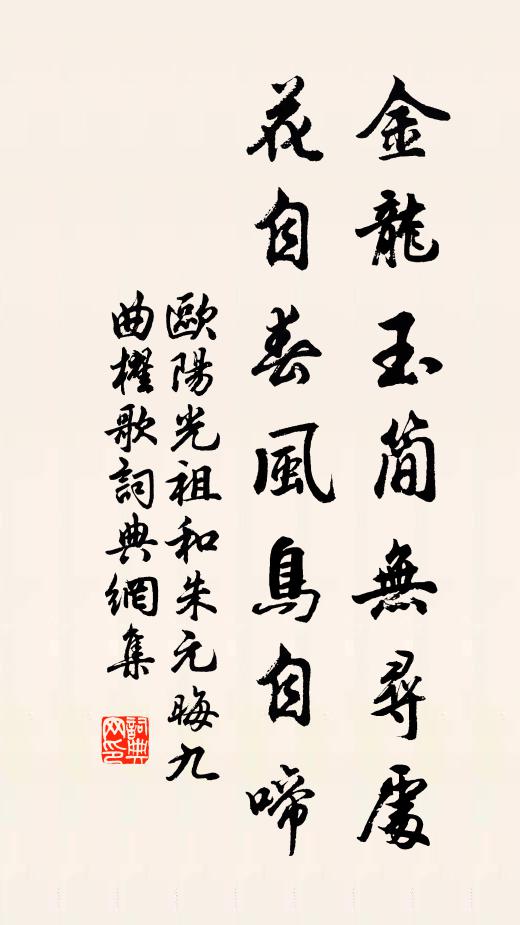 金龍玉簡無尋處
花自春風鳥自啼
歐陽光祖和朱元晦九
曲櫂歌詞典網集
詞典網印